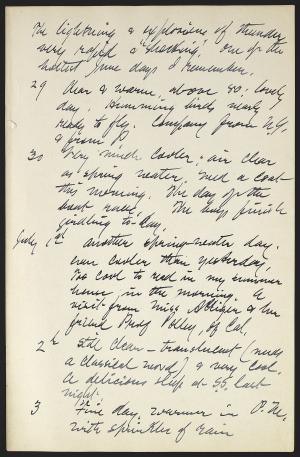 The lightning & explosions of thunder
very rapid & "shocking", one of the
hottest June days I remember.
29 Clear & warm, above 80; lovely
day. Humming birds nearly
ready to fly. Company from N.Y.
& from P.
30 Very much cooler; air clear
as spring water. Need a coat
this morning. The day of the
boat race. The boys finish
girdling to-day.
July 1st Another spring-water day,
even cooler than yesterday.
Too cool to read in my summer
house in the morning. A
visit from Miss & her
friend Prof of Cal.
2d Still clear — translucent (needs
a classical word) & very cool.
A delicious sleep at S.S. last
night.
3 Fine day, warmer in P.M.
with sprinkle of rain